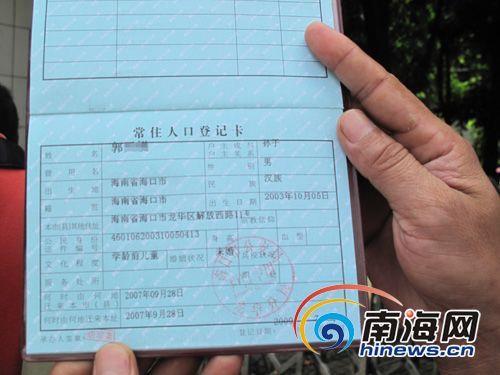 常住人口登记卡
姓名 郭 户主或与户主关系 孙子
曾用名 性别 男
出生地 海南省海口市 民族 汉族
籍贯 海南省海口市 出生日期 2003年10月05日
本市(县)其他住址 海南省海口市龙华区解放西路11号 宗教信仰
公民身份证件编号 460106200310050413 身高 血型
文化程度 学龄前儿童 婚姻状况 未婚 兵役状况
服务处所
何时由何地迁来本市(县) 2007年09月28日
何时由何地迁来本址 2007年9月28日
承办人签章 登记日期: 2009
南海网
hinews.cn